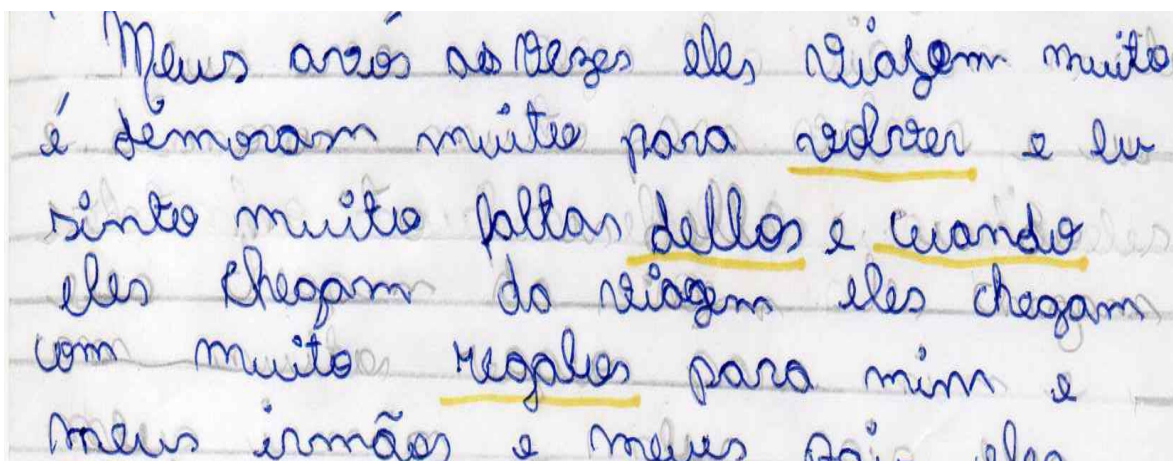 Meus avós as vezes eles viagem muito
é demoram muito para volver e eu
sinto muito faltas dellos e cuando
eles chegam da viagem eles chegam
com muito regalos para mim e
meus irmãos e meus pais eles